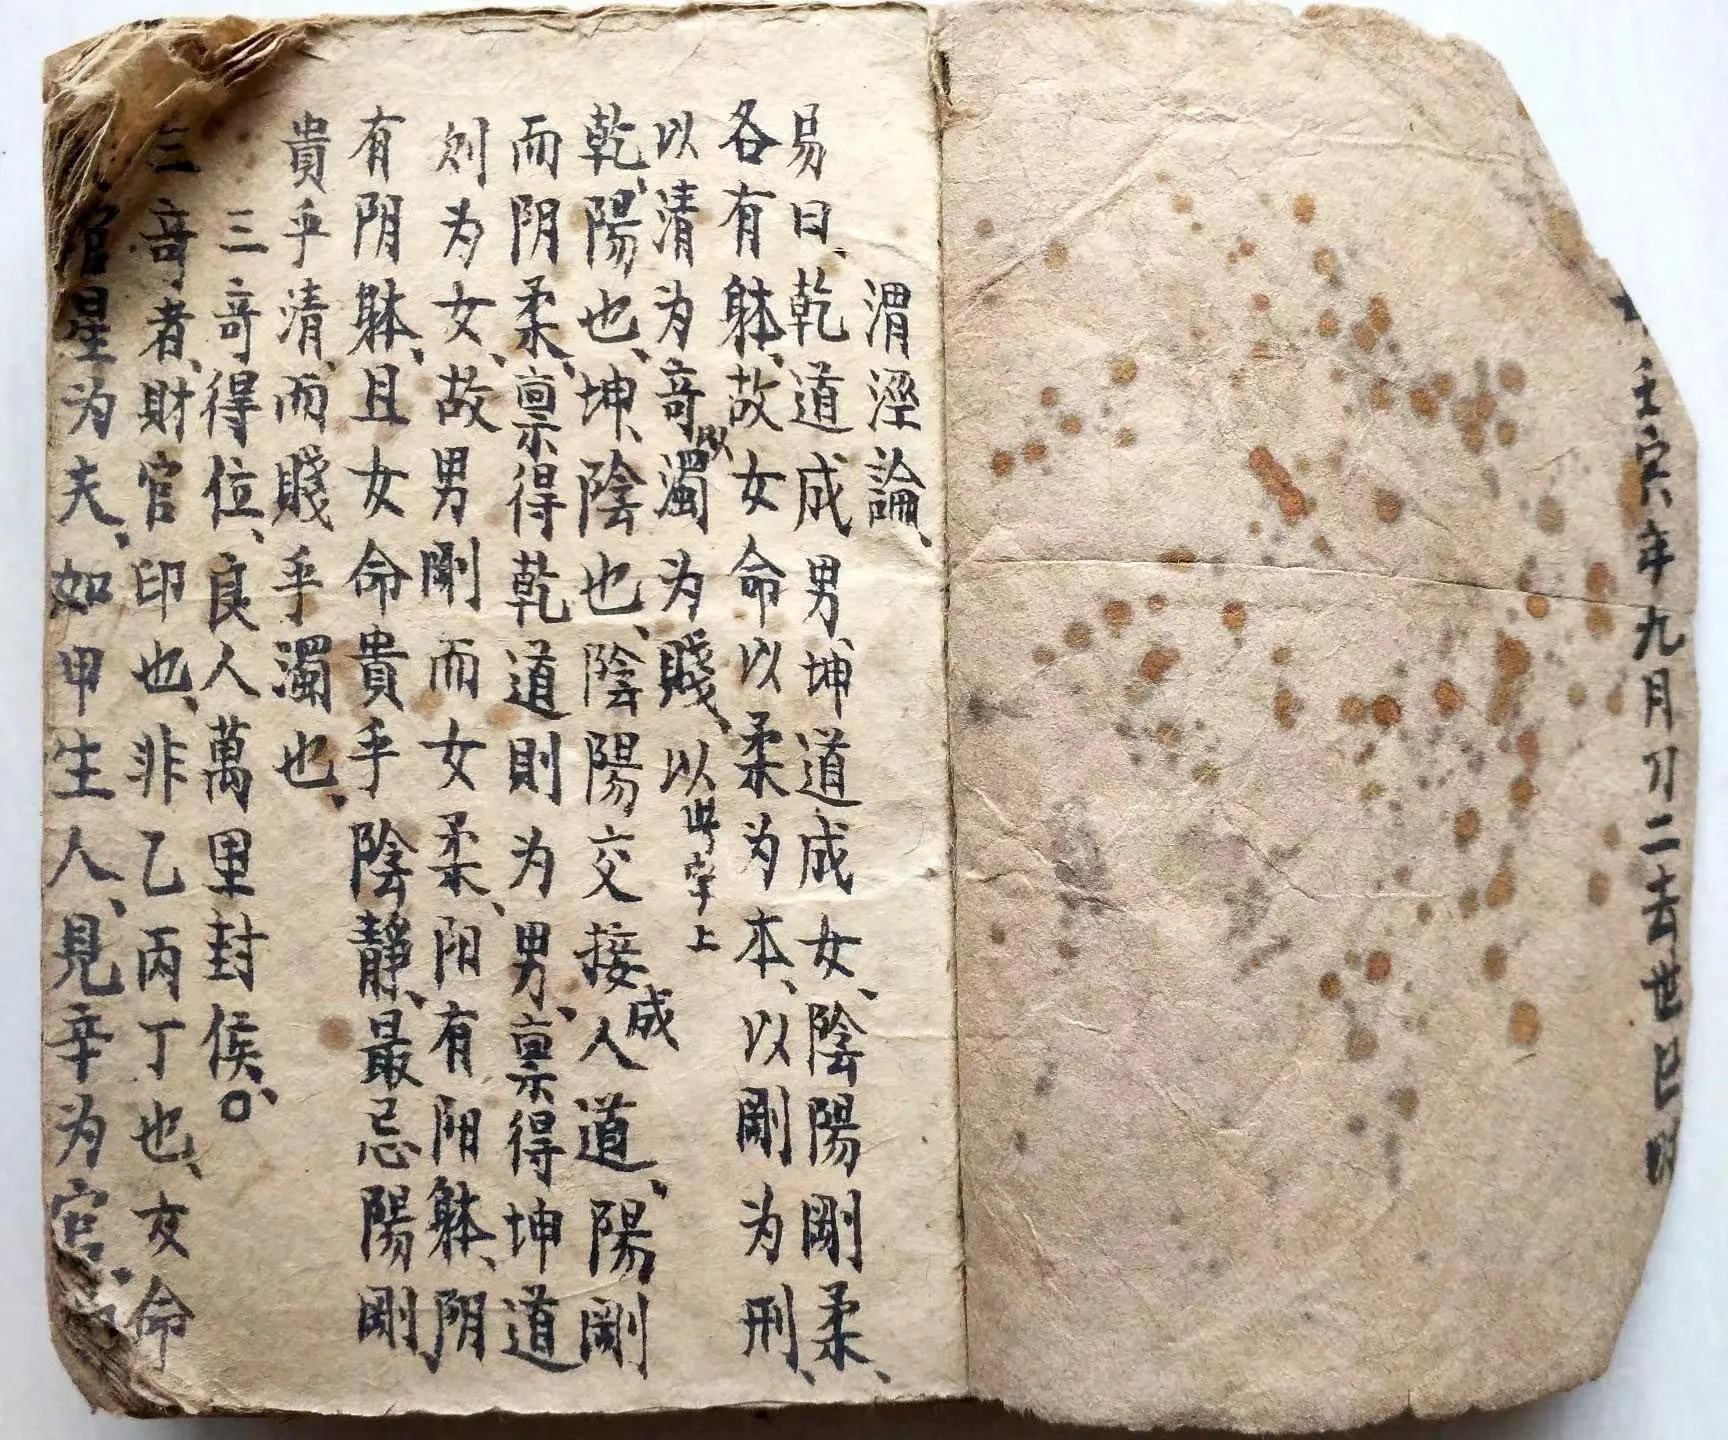 壬寅年九月刀二去世巳明
渭涇論、
易曰、乾道成男、坤道成女、陰陽剛柔、
各有躰、故女命以柔为本、以剛为刑、
以清为竒以濁为賤、以此字上
乾、陽也、坤、陰也、陰陽交接成人道、陽剛
而阴柔、禀得乾道則为男、禀得坤道
则为女、故男剛而女柔、阳有阳躰、阴
有阴躰、且女命貴乎陰静、最忌陽剛
貴乎清、而賤乎濁也、
三竒得位、良人萬里封侯、〇
三竒者、財官印也、非乙丙丁也、女命
官星为夫、如甲生人、見辛为官、